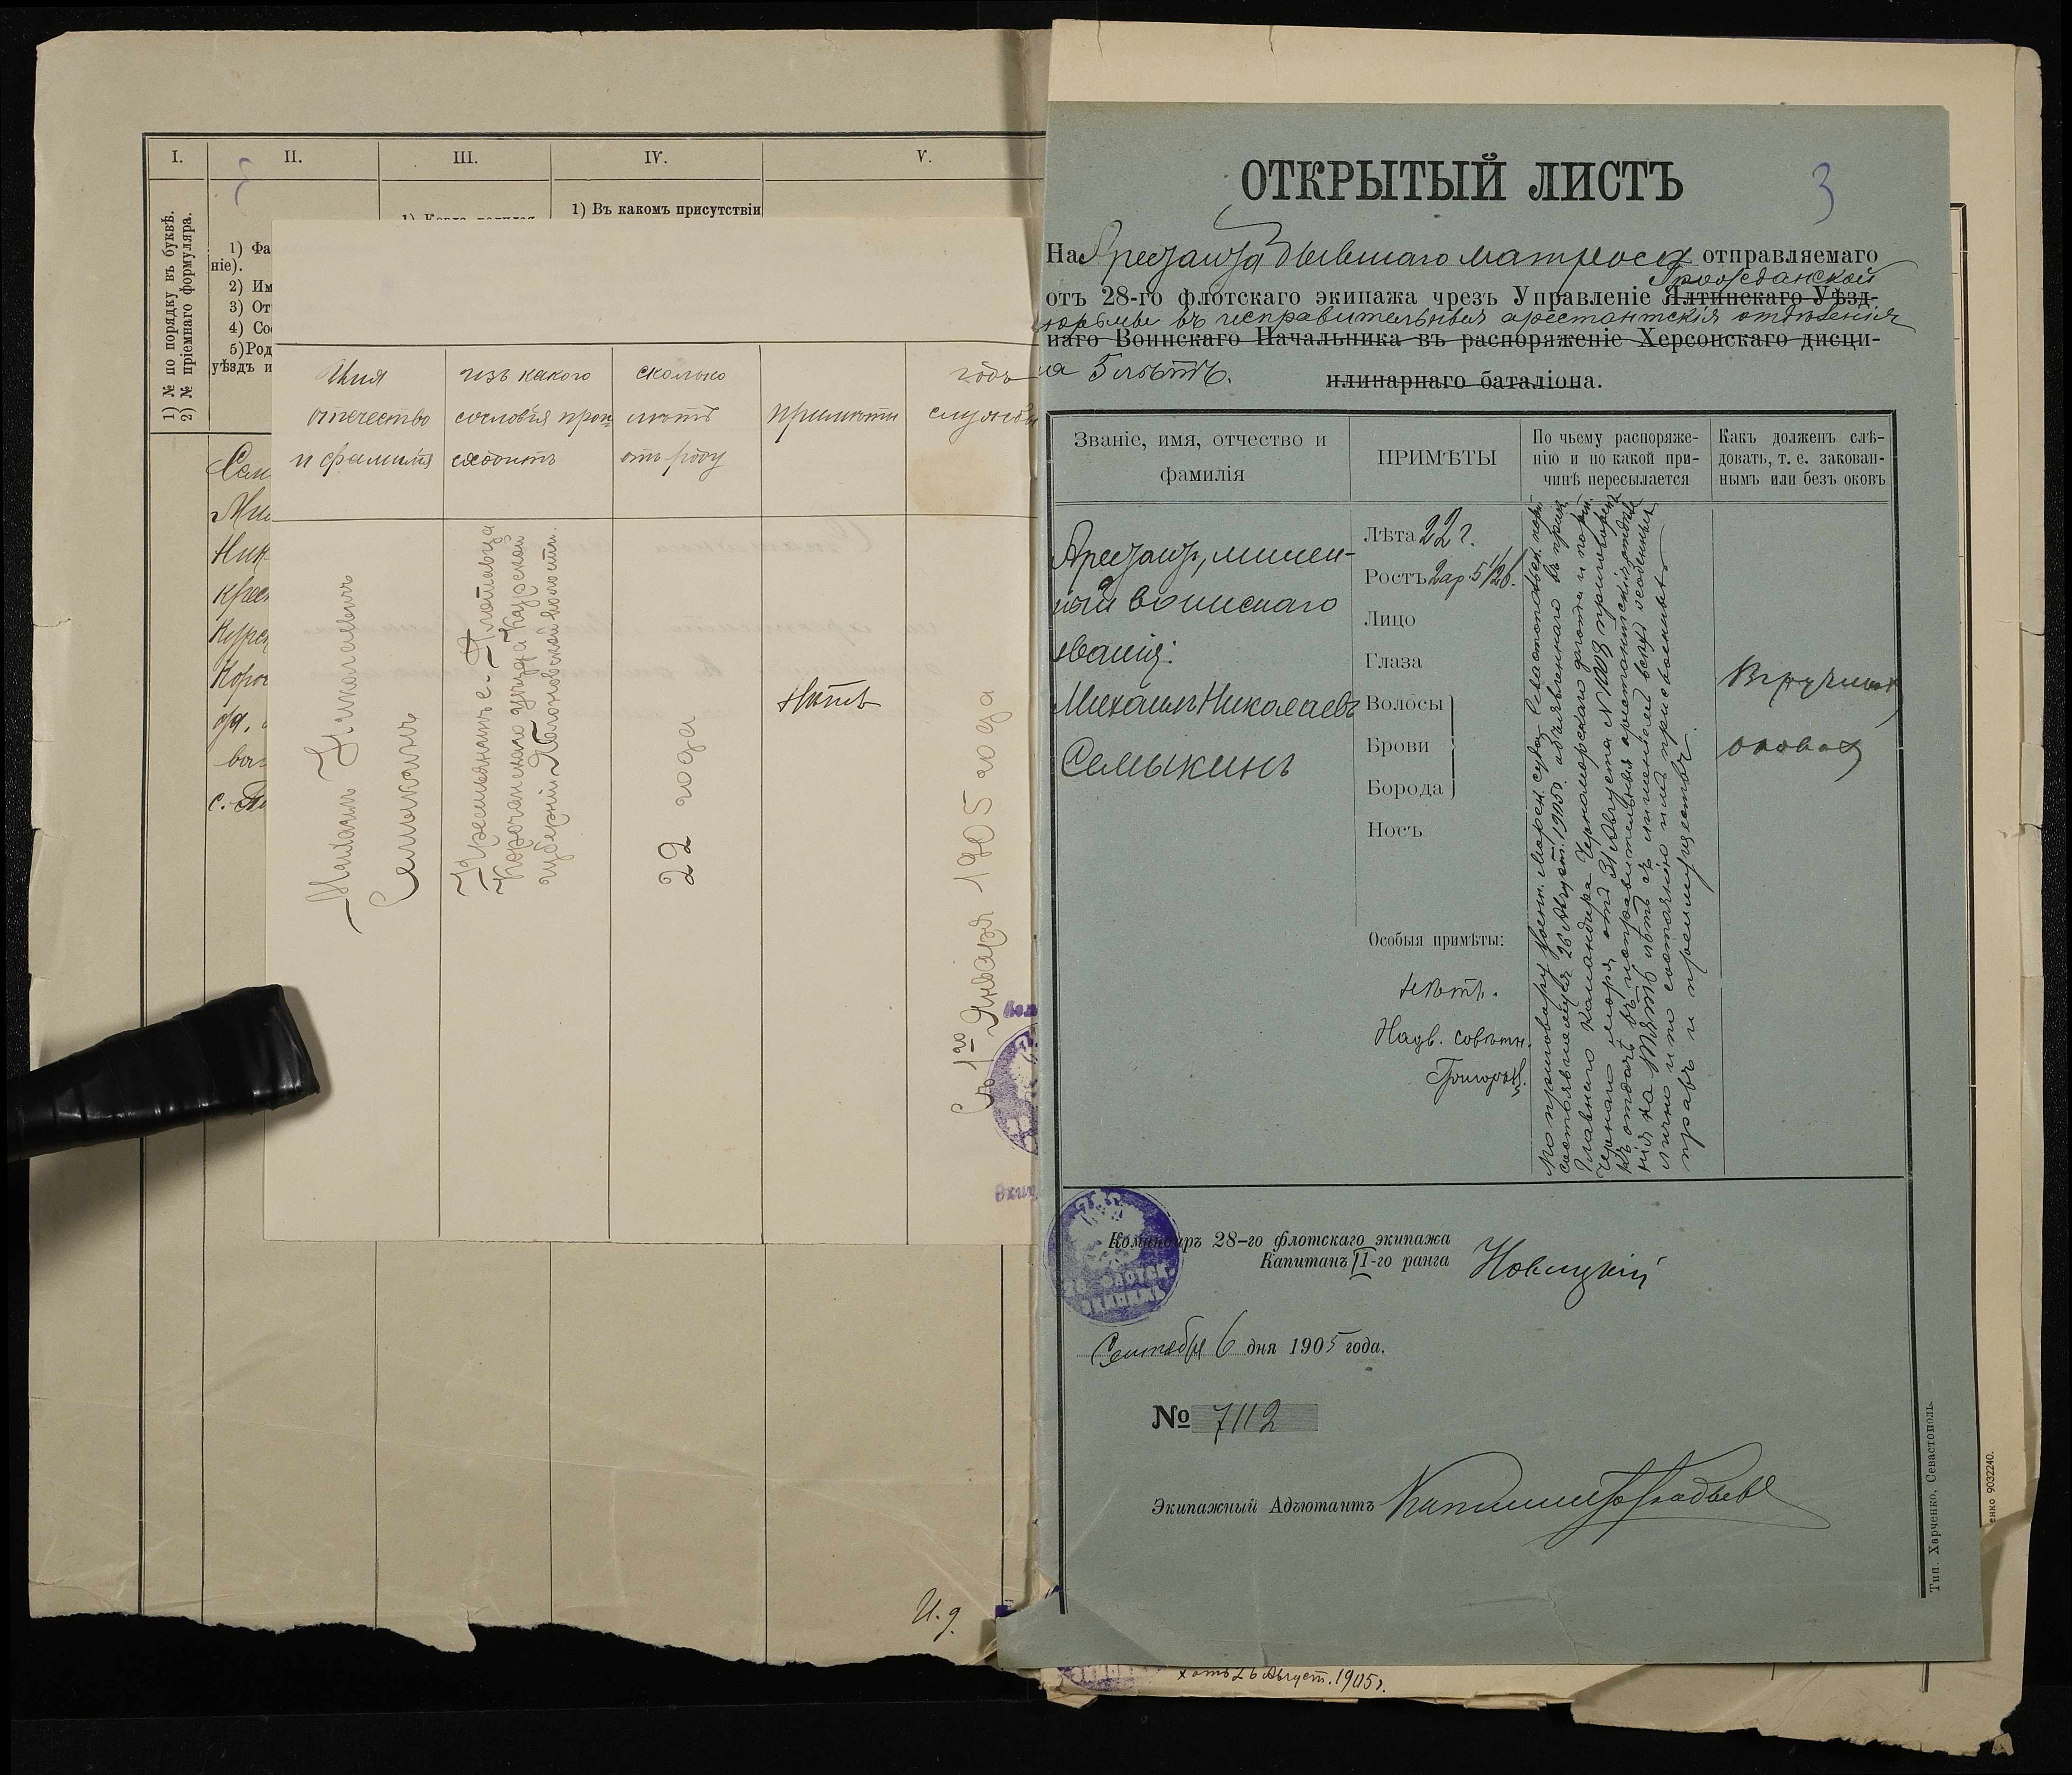 I.
II.
III.
IV.
V.
1) № по порядку въ буквѣ.
2) № пріемнаго формуляра.
1) Фа
ніе).
2) Им
3) От
4) Сос
5) Род
уѣздъ и
1) Когда родился
1) Въ какомъ присутствіи
Сем
Мих
Ник
крест
Курск
Короч
с.
Имя
отечество
и фамилія
изъ какого
сословія прои-
сходитъ
сколько
лѣтъ
отъ роду
примѣты
годъ
службы
Михаилъ Николаевичъ
Семыкинъ
Крестьянинъ с. Плотавца
Корочанскаго уѣзда Курской
губерніи Яблоновской волости.
22 года
Нѣтъ
Съ 1го Января 1905 года
И. д.
ОТКРЫТЫЙ ЛИСТЪ
3
На Арестанта бывшаго матроса отправляемаго
Гражданской
отъ 28-го флотскаго экипажа чрезъ Управленіе Ялтинскаго Уѣзд-
тюрьмы въ исправительныя арестантскія отдѣленія
наго Воинскаго Начальника въ распоряженіе Херсонскаго дисци-
на 5 лѣтъ.
плинарнаго баталіона.
Званіе, имя, отчество и
фамилія
ПРИМѢТЫ
По чьему распоряже-
нію и по какой при-
чинѣ пересылается
Какъ долженъ слѣ-
довать, т. е. закован-
нымъ или безъ оковъ
Арестантъ, лишен-
ный воинскаго
званія:
Михаилъ Николаевъ
Семыкинъ
Лѣта 22 г.
Ростъ 2 ар. 5 1/2 в.
Лицо
Глаза
Волосы
Брови
Борода
Носъ
Особыя примѣты:
нѣтъ.
Надв. совѣтн.
По приговору Военн. Морск. суда Севастопольск. порт.
состоявшемуся 26 Август. 1905 г. объявленнаго въ приказ.
Главнаго Командира Черноморскаго флота и портов.
Чернаго моря отъ 31 Августа приговоренъ
къ отдачѣ въ исправительныя арестантскія отдѣле-
нія на ПЯТЬ лѣтъ съ лишеніемъ всѣхъ особенныхъ
лично и по состоянію присвоенныхъ
правъ и преимуществъ.
Въ ручныхъ
оковахъ
28 ФЛОТСК.
ЭКИПАЖЪ
Командиръ 28-го флотскаго экипажа
Капитанъ II-го ранга Новицкій
Сентября 6 дня 1905 года.
№ 7112
Экипажный Адъютантъ
Тип. Харченко, Севастополь.
енко 9032240.
26 Август. 1905 г.